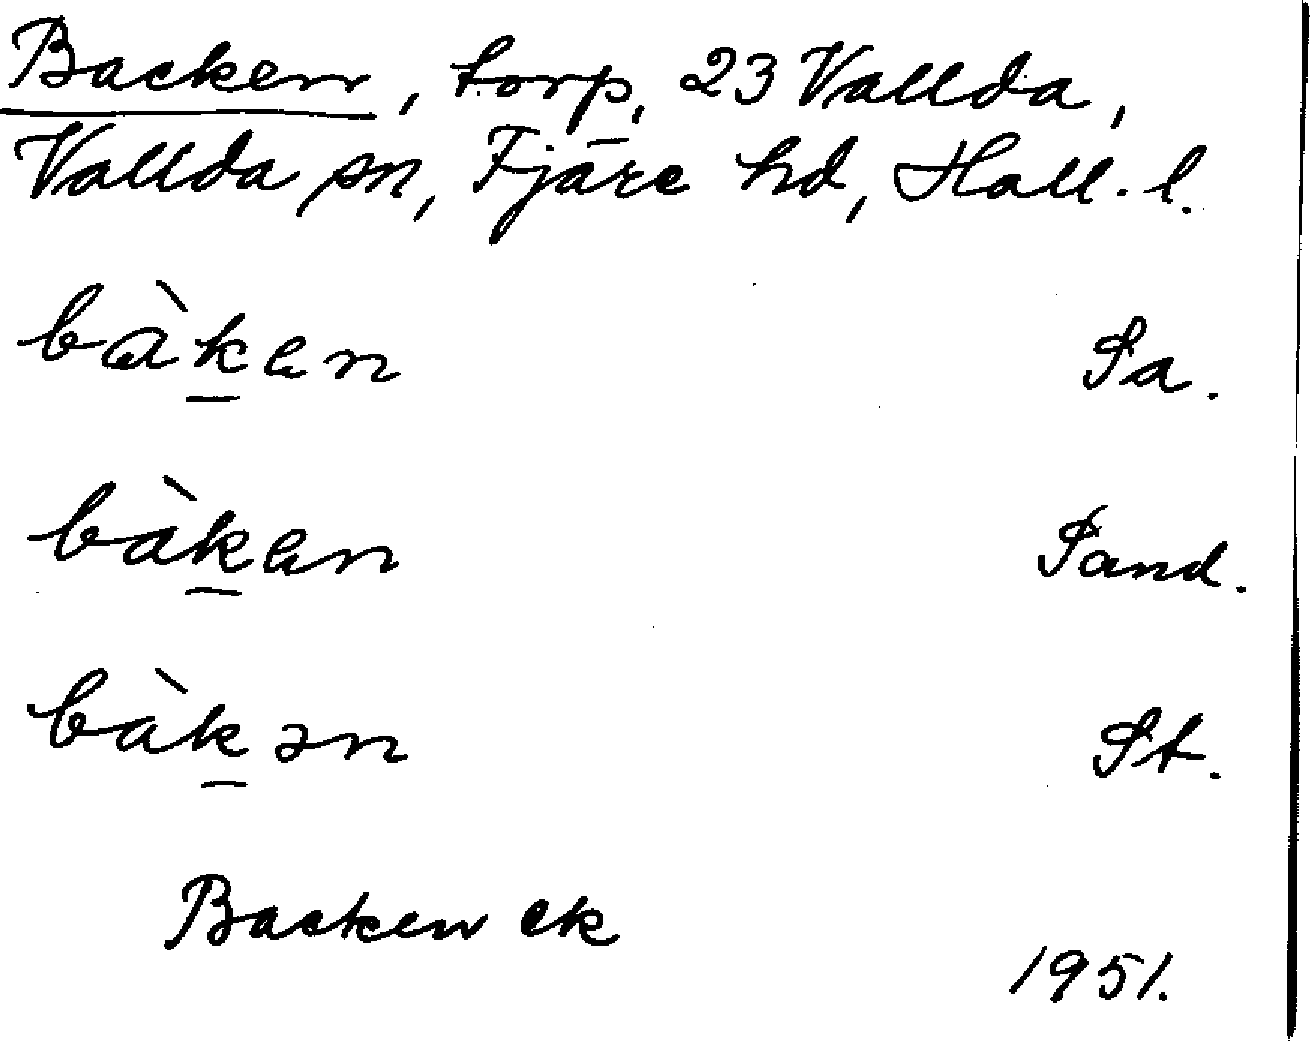 Backen, torp, 23 Vallda,
Vallda sn, Fjäre hd, Hall. l.
bàk̲en Sa.
bàk̲en Sand.
bàk̲ən St.
Backen ek
1951.